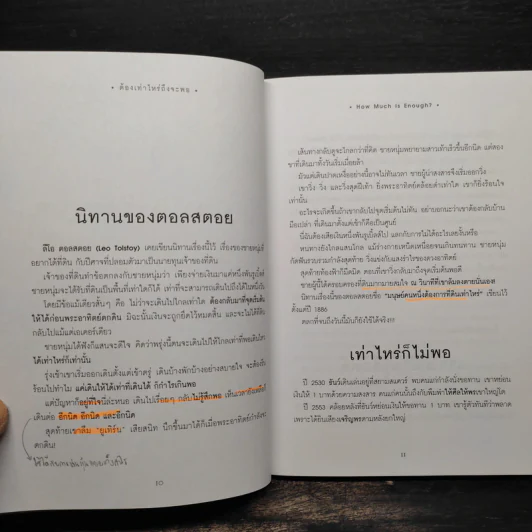 • ต้องเท่าไหร่ถึงจะพอ •
นิทานของตอลสตอย
ลีโอ ตอลสตอย (Leo Tolstoy) เคยเขียนนิทานเรื่องนี้ไว้ เรื่องของชายหนุ่มที่
อยากได้ที่ดิน กับปีศาจที่ปลอมตัวมาเป็นนายทุนเจ้าของที่ดิน
เจ้าของที่ดินทำข้อตกลงกับชายหนุ่มว่า เพียงจ่ายเงินมาแค่หนึ่งพันรูเบิ้ล
ชายหนุ่มจะได้รับที่ดินเป็นพื้นที่เท่าใดก็ได้ เท่าที่จะสามารถเดินไปถึงได้ใน
โดยมีข้อแม้เดียวสั้นๆ คือ ไม่ว่าจะเดินไปไกลเท่าใด ต้องกลับมาที่จุดเริ่มต้น
ให้ได้ก่อนพระอาทิตย์ตกดิน มิฉะนั้นเงินจะถูกยึดไว้หมดสิ้น และจะไม่ได้ที่ดิน
กลับไปแม้แต่เอเคอร์เดียว
ชายหนุ่มได้ฟังก็แสนจะดีใจ คิดว่าพรุ่งนี้ตนจะเดินไปให้ไกลเท่าที่พอเดิน
ได้เท่าไหร่ก็เท่านั้น
รุ่งเช้าเขาเริ่มออกเดินตั้งแต่เช้าตรู่ เดินบ้างพักบ้างอย่างสบายใจ จะต้อง
ร้อนไปทำไม แค่เดินให้ได้เท่าที่เดินได้ ก็กำไรเกินพอ
แต่ปัญหาก็อยู่ที่ใจนี่ละหนอ เดินไปเรื่อยๆ กลับไม่รู้สึกพอ เห็นเวลายังเหลือก็
เดินต่อ อีกนิด อีกนิด และอีกนิด
สุดท้ายเขาลืม "ยูเทิร์น" เสียสนิท นึกขึ้นมาได้ก็เมื่อพระอาทิตย์กำลังจะ
ตกดิน!
10
• How Much Is Enough? •
เส้นทางกลับดูจะไกลกว่าที่คิด ชายหนุ่มพยายามสาวเท้าเร็วขึ้นอีกนิด แต่สอง
ขาที่เดินมาทั้งวันเริ่มเมื่อยล้า
มัวแต่เดินปาดเหงื่ออย่างนี้อาจไม่ทันเวลา ชายผู้น่าสงสารจึงเริ่มออกวิ่ง
เขาวิ่ง วิ่ง และวิ่งสุดฝีเท้า ยิ่งพระอาทิตย์คล้อยต่ำเท่าใด เขาก็ยิ่งร้อนใจ
เท่านั้น
อะไรจะเกิดขึ้นถ้าเขากลับไปจุดเริ่มต้นไม่ทัน อย่าบอกนะว่าเขาต้องกลับบ้าน
มือเปล่า ที่เดินมาตั้งแต่เช้าก็คือสูญเปล่า
นี่ฉันต้องเสียเงินหนึ่งพันรูเบิ้ลไป แลกกับการไม่ได้อะไรเลยงั้นหรือ
หนทางยังไกลแสนไกล แม้ร่างกายเหนื่อยจนเกินทนทาน ชายหนุ่ม
กัดฟันรวมกำลังสุดท้าย วิ่งแข่งกับแสงรำไรของดวงอาทิตย์
สุดท้ายท้องฟ้าก็มืดมิด ตอนที่เขาวิ่งกลับมาถึงจุดเริ่มต้นพอดี
ชายผู้นี้ได้ครอบครองที่ดินมากมายสมใจ ณ วินาทีที่เขาล้มลงตายนั่นเอง!
นิทานเรื่องนี้ของตอลสตอยชื่อ "มนุษย์คนหนึ่งต้องการที่ดินเท่าไหร่" เขียนไว้
ตั้งแต่ปี 1886
ตลกที่จนถึงวันนี้มันก็ยังใช้ได้จริง!!!
เท่าไหร่ก็ไม่พอ
ปี 2530 ฉันเดินเล่นอยู่ที่สยามสแควร์ พบคนแก่กำลังนั่งขอทาน เขาหย่อน
เงินให้ 1 บาทด้วยความสงสาร
ปี 2553
11